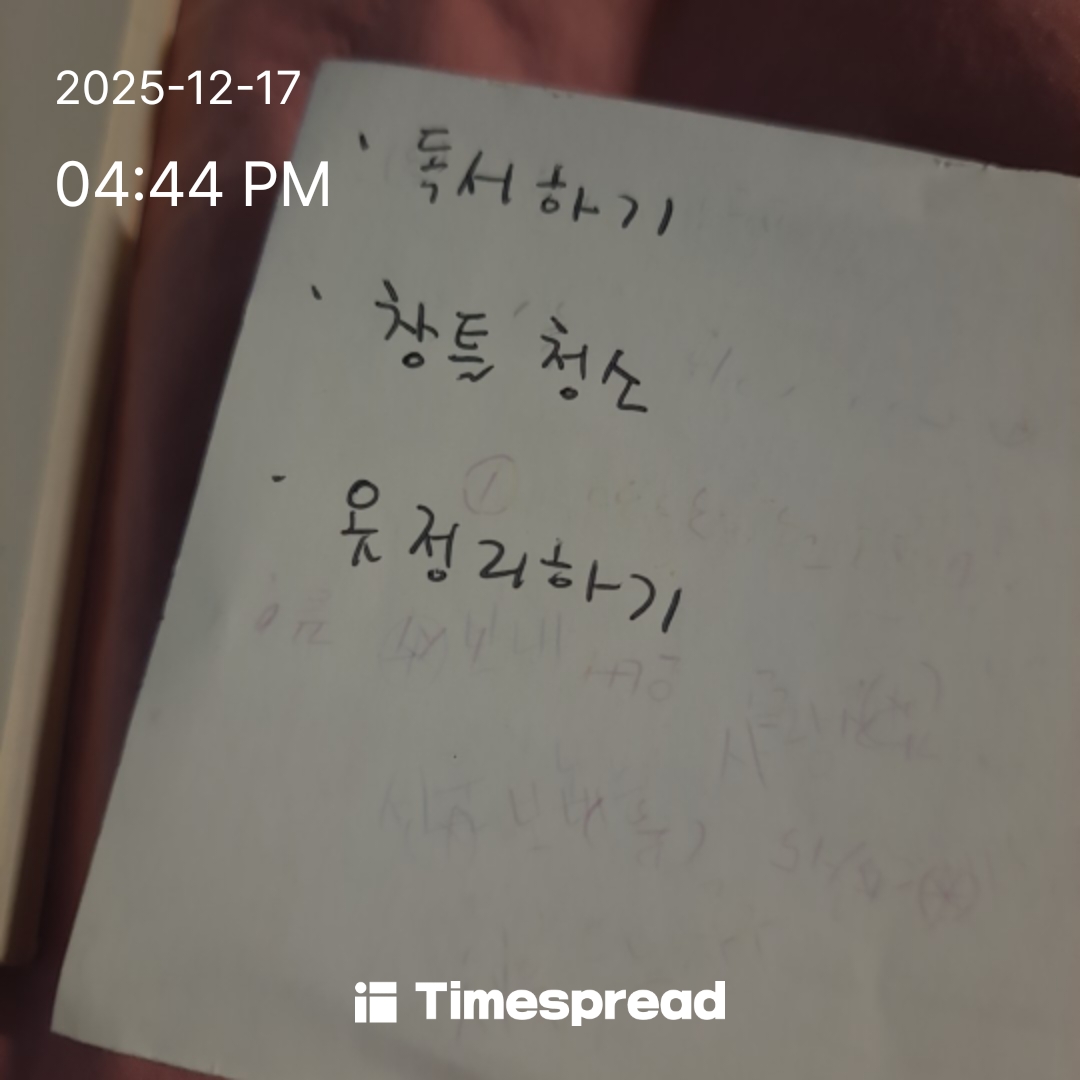 2025-12-17
04:44 PM
· 독서하기
· 창틀 청소
- 옷 정리하기
Timespread